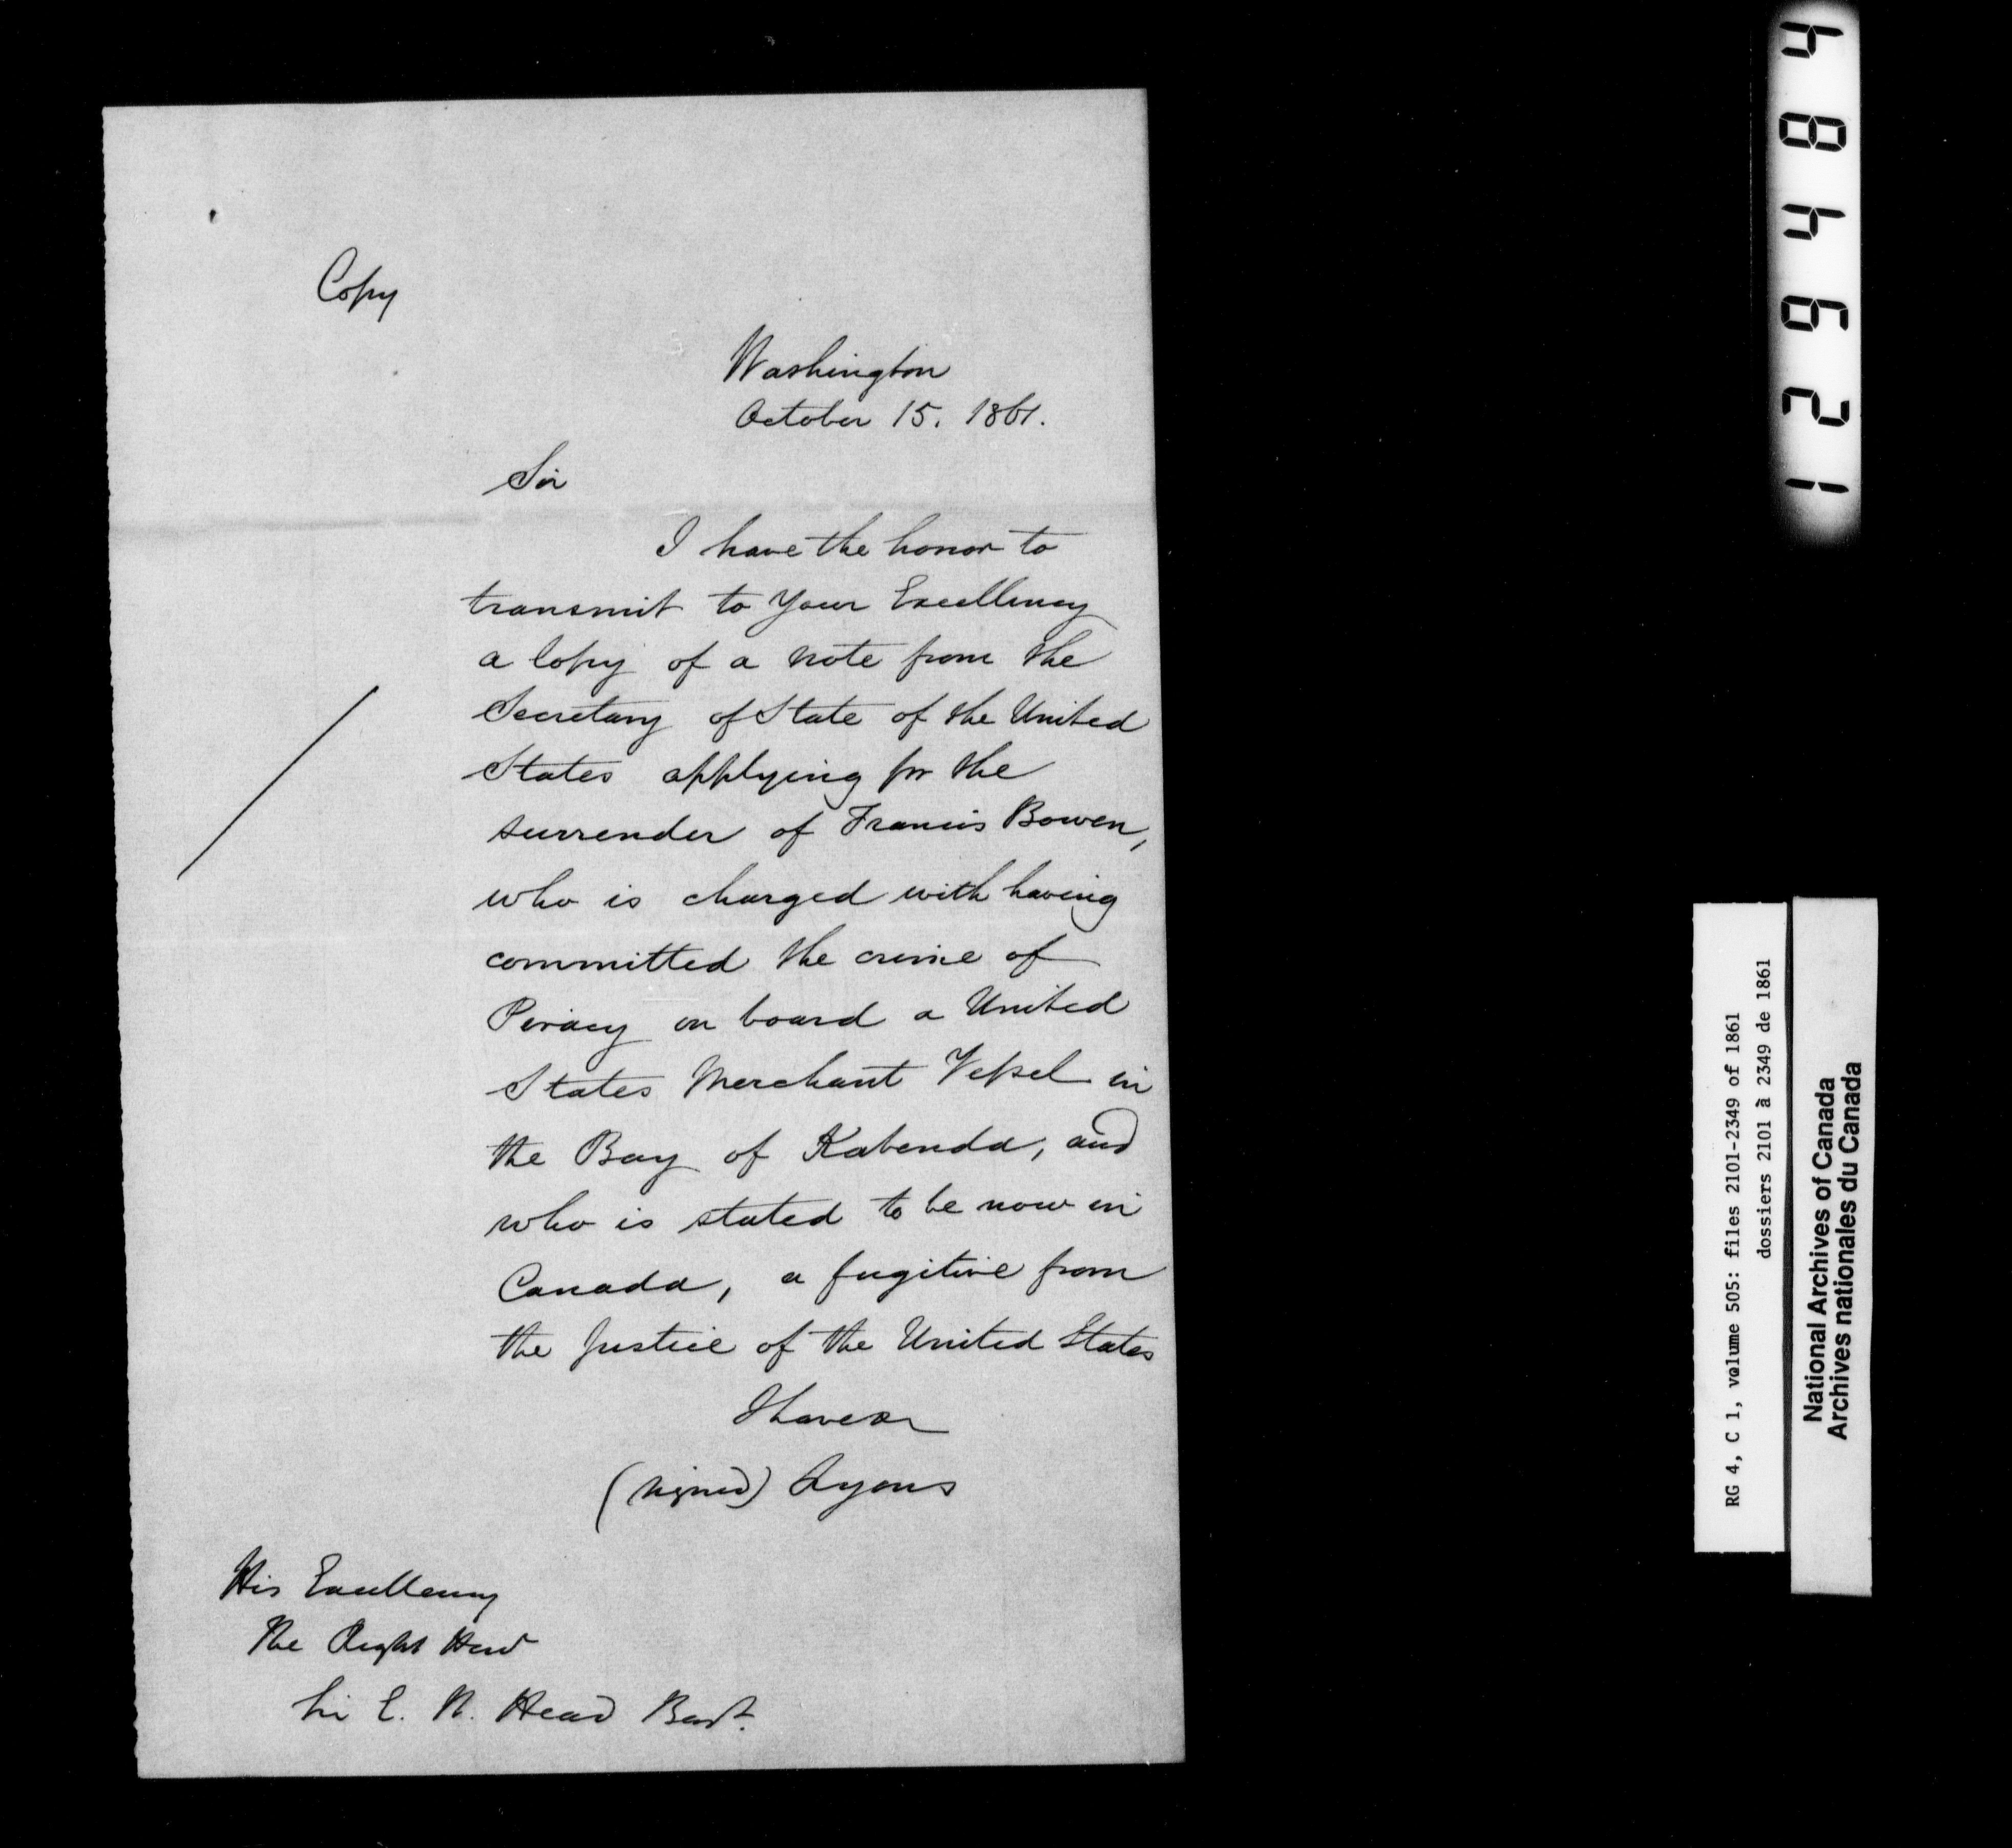 Copy
Washington
October 15. 1861.
Sir
I have the honor to
transmit to Your Excellency
a Copy of a note from the
Secretary of State of the United
States applying for the
surrender of Francis Bowen,
who is charged with having
committed the crime of
Piracy on board a United
States Merchant Vessel in
the Bay of Kabenda, and
who is stated to be now in
Canada, a fugitive from
the Justice of the United States
I have &c
(signed) Lyons
His Excellency
The Right Hon
Sir E. W. Head Bart.
129484
RG 4, C 1, volume 505: files 2101-2349 of 1861
dossiers 2101 à 2349 de 1861
National Archives of Canada
Archives nationales du Canada